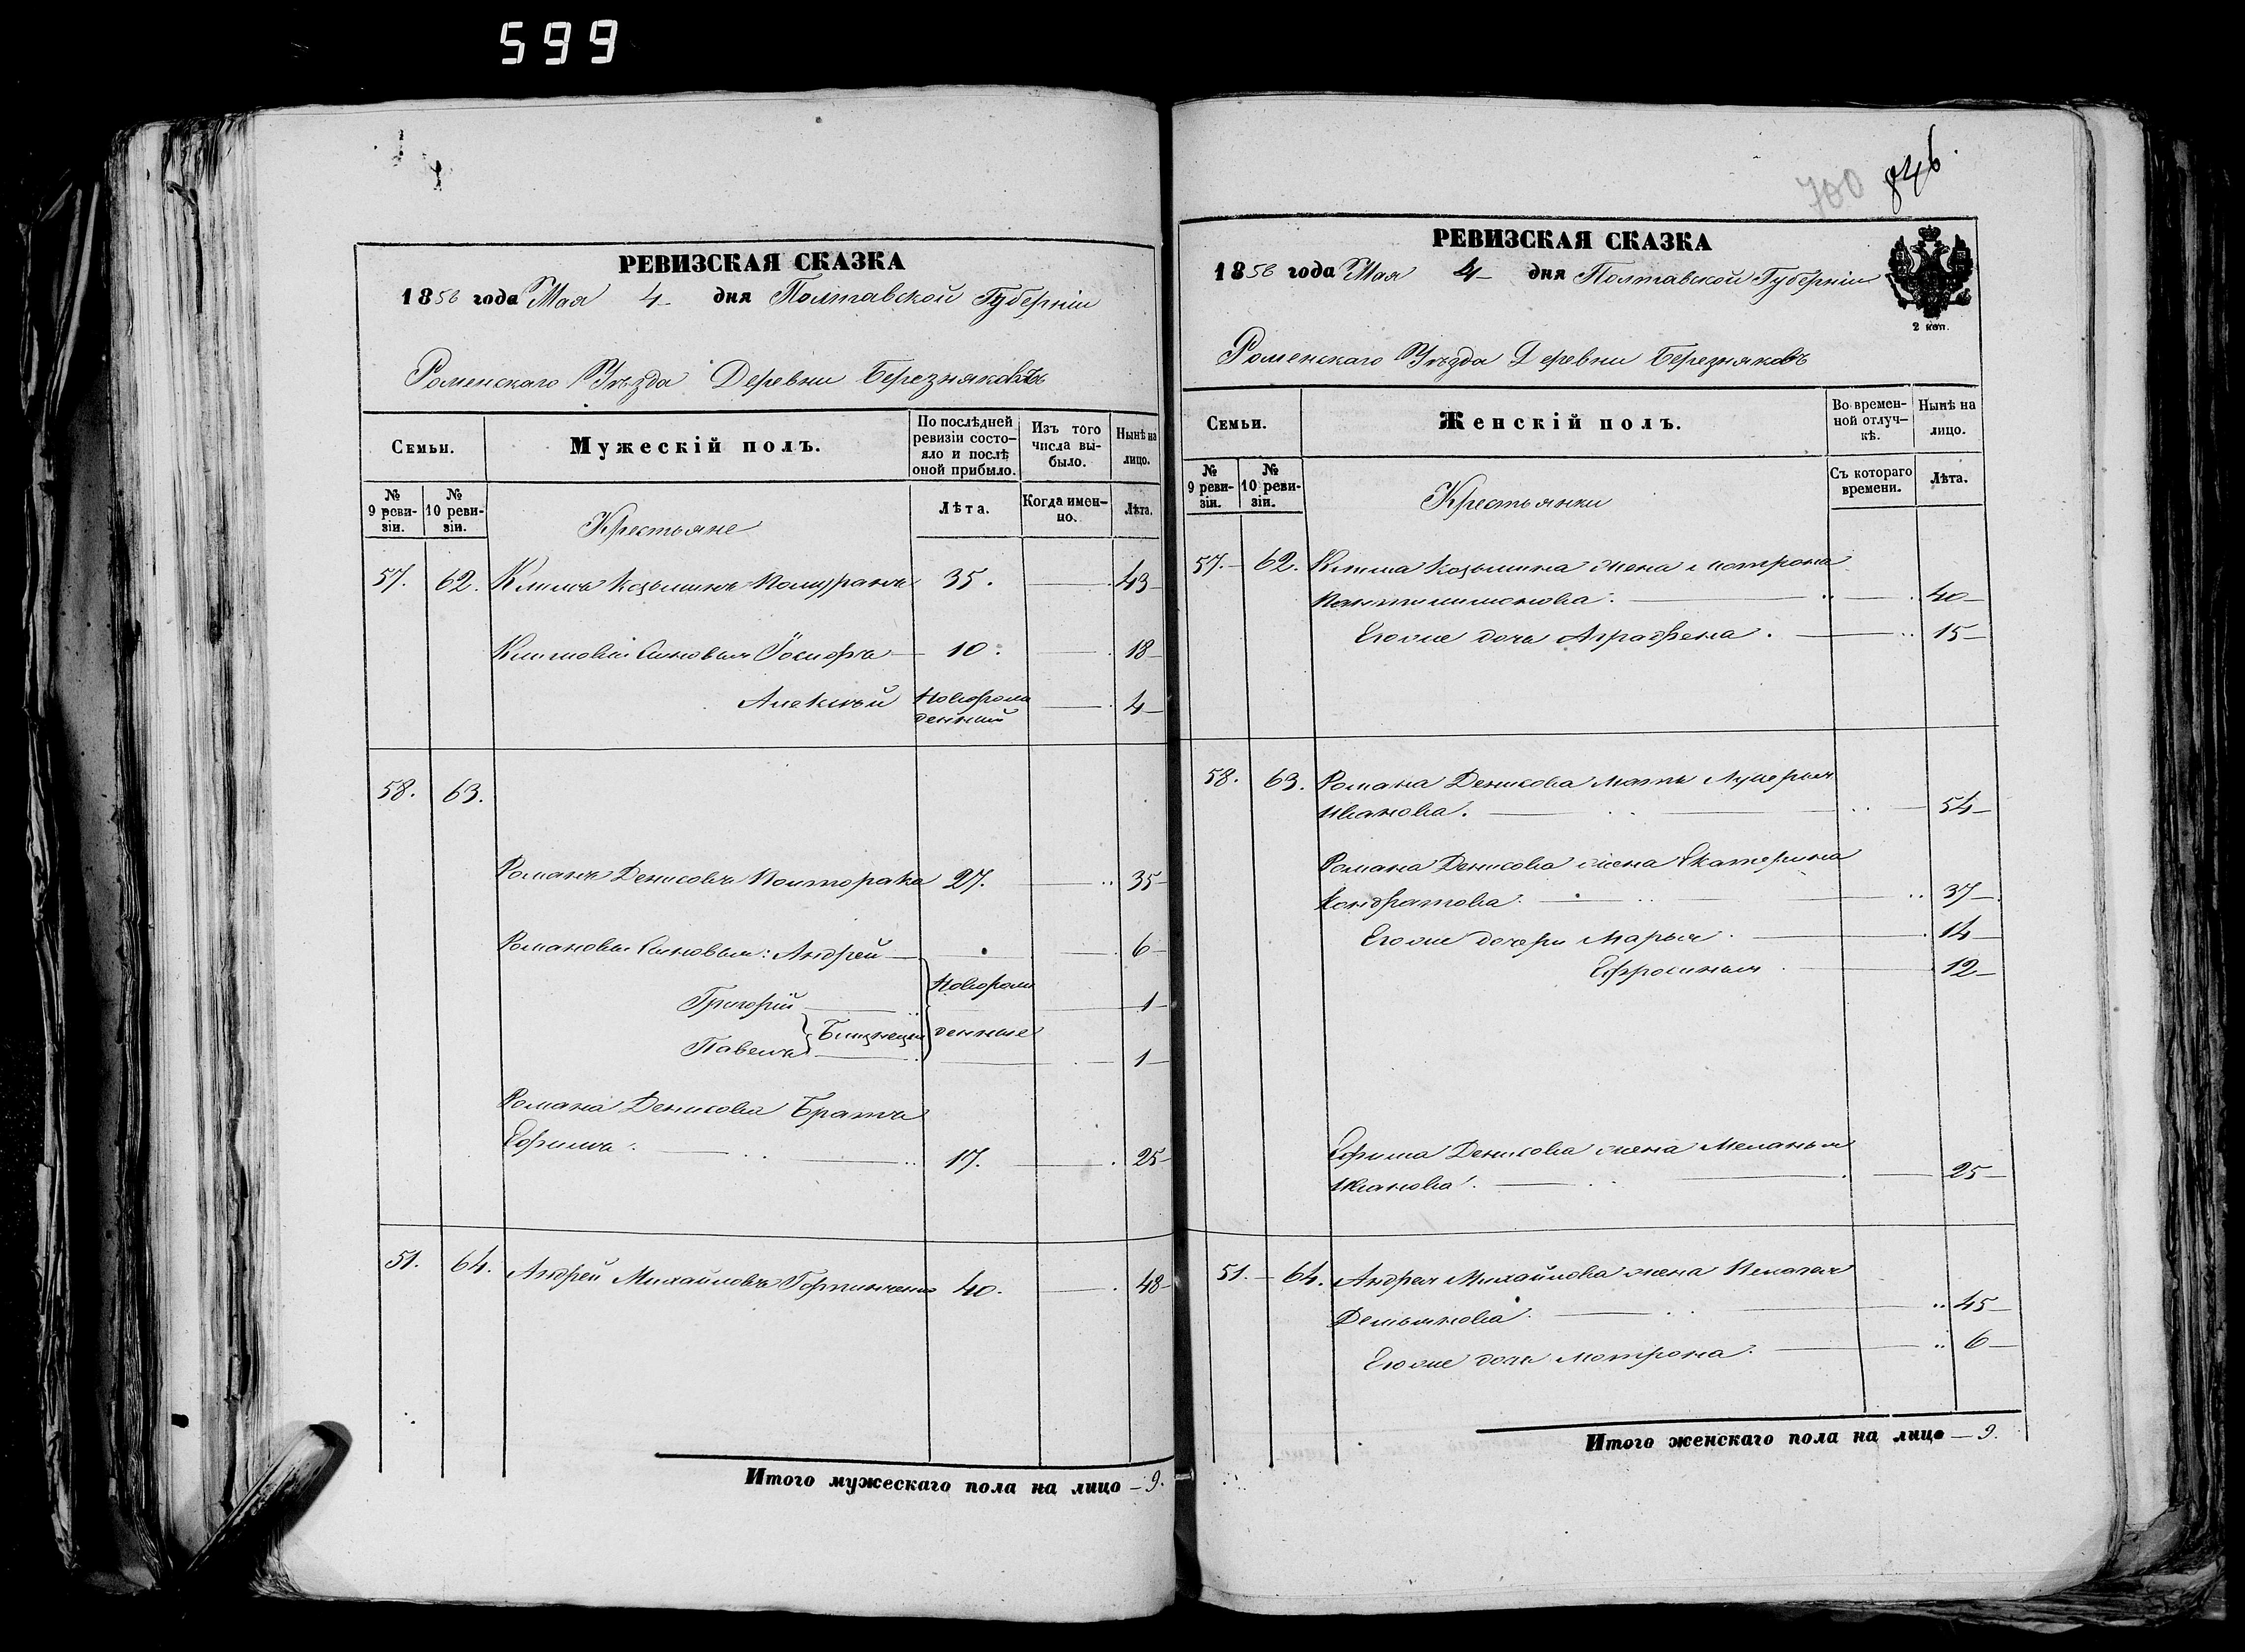 599
РЕВИЗСКАЯ СКАЗКА
1856 года Мая 4 дня Полтавской Губерніи
Роменскаго Уѣзда Деревни Березняковъ
Семьи.
Мужескій полъ.
По послѣдней ревизіи состояло и послѣ оной прибыло.
Изъ того числа выбыло.
Нынѣ на лицо.
№ 9 ревизіи.
№ 10 ревизіи.
Крестьяне
Лѣта.
Когда именно.
Лѣта.
57. 62. Климъ Козьминъ 35. 43
Климовы Сыновья Іосифъ 10. 18
Алексѣй Новорожденный 4
58. 63.
Романъ Денисовъ Полторака 27. 35
Романовы Сыновья: Андрей 6
Григорій Новорож 1
Павелъ Близнецы денные 1
Романа Денисова Братъ
Ефимъ 17. 25
51. 64. Андрей Михайловъ 40. 48
Итого мужескаго пола на лицо 9.
700 846
РЕВИЗСКАЯ СКАЗКА
1856 года Мая 4 дня Полтавской Губерніи
2 коп.
Роменскаго Уѣзда Деревни Березняковъ
Семьи.
Женскій полъ.
Во временной отлучкѣ.
Нынѣ на лицо.
№ 9 ревизіи.
№ 10 ревизіи.
Крестьянки
Съ котораго времени.
Лѣта.
57. 62. Клима Козьмина жена Мотрона
Пантилимонова. 40
Егоже дочь Аграфена. 15
58. 63. Романа Денисова мать Лукерья
Иванова. 54
Романа Денисова жена Екатерина
Кондратова. 37
Егоже дочери Марья 14
Ефросинья 12
Ефима Денисова жена Меланья
Иванова. 25
51. 64. Андрея Михайлова жена Пелагея
Демьянова. 45
Егоже дочь Мотрона. 6
Итого женскаго пола на лицо 9.